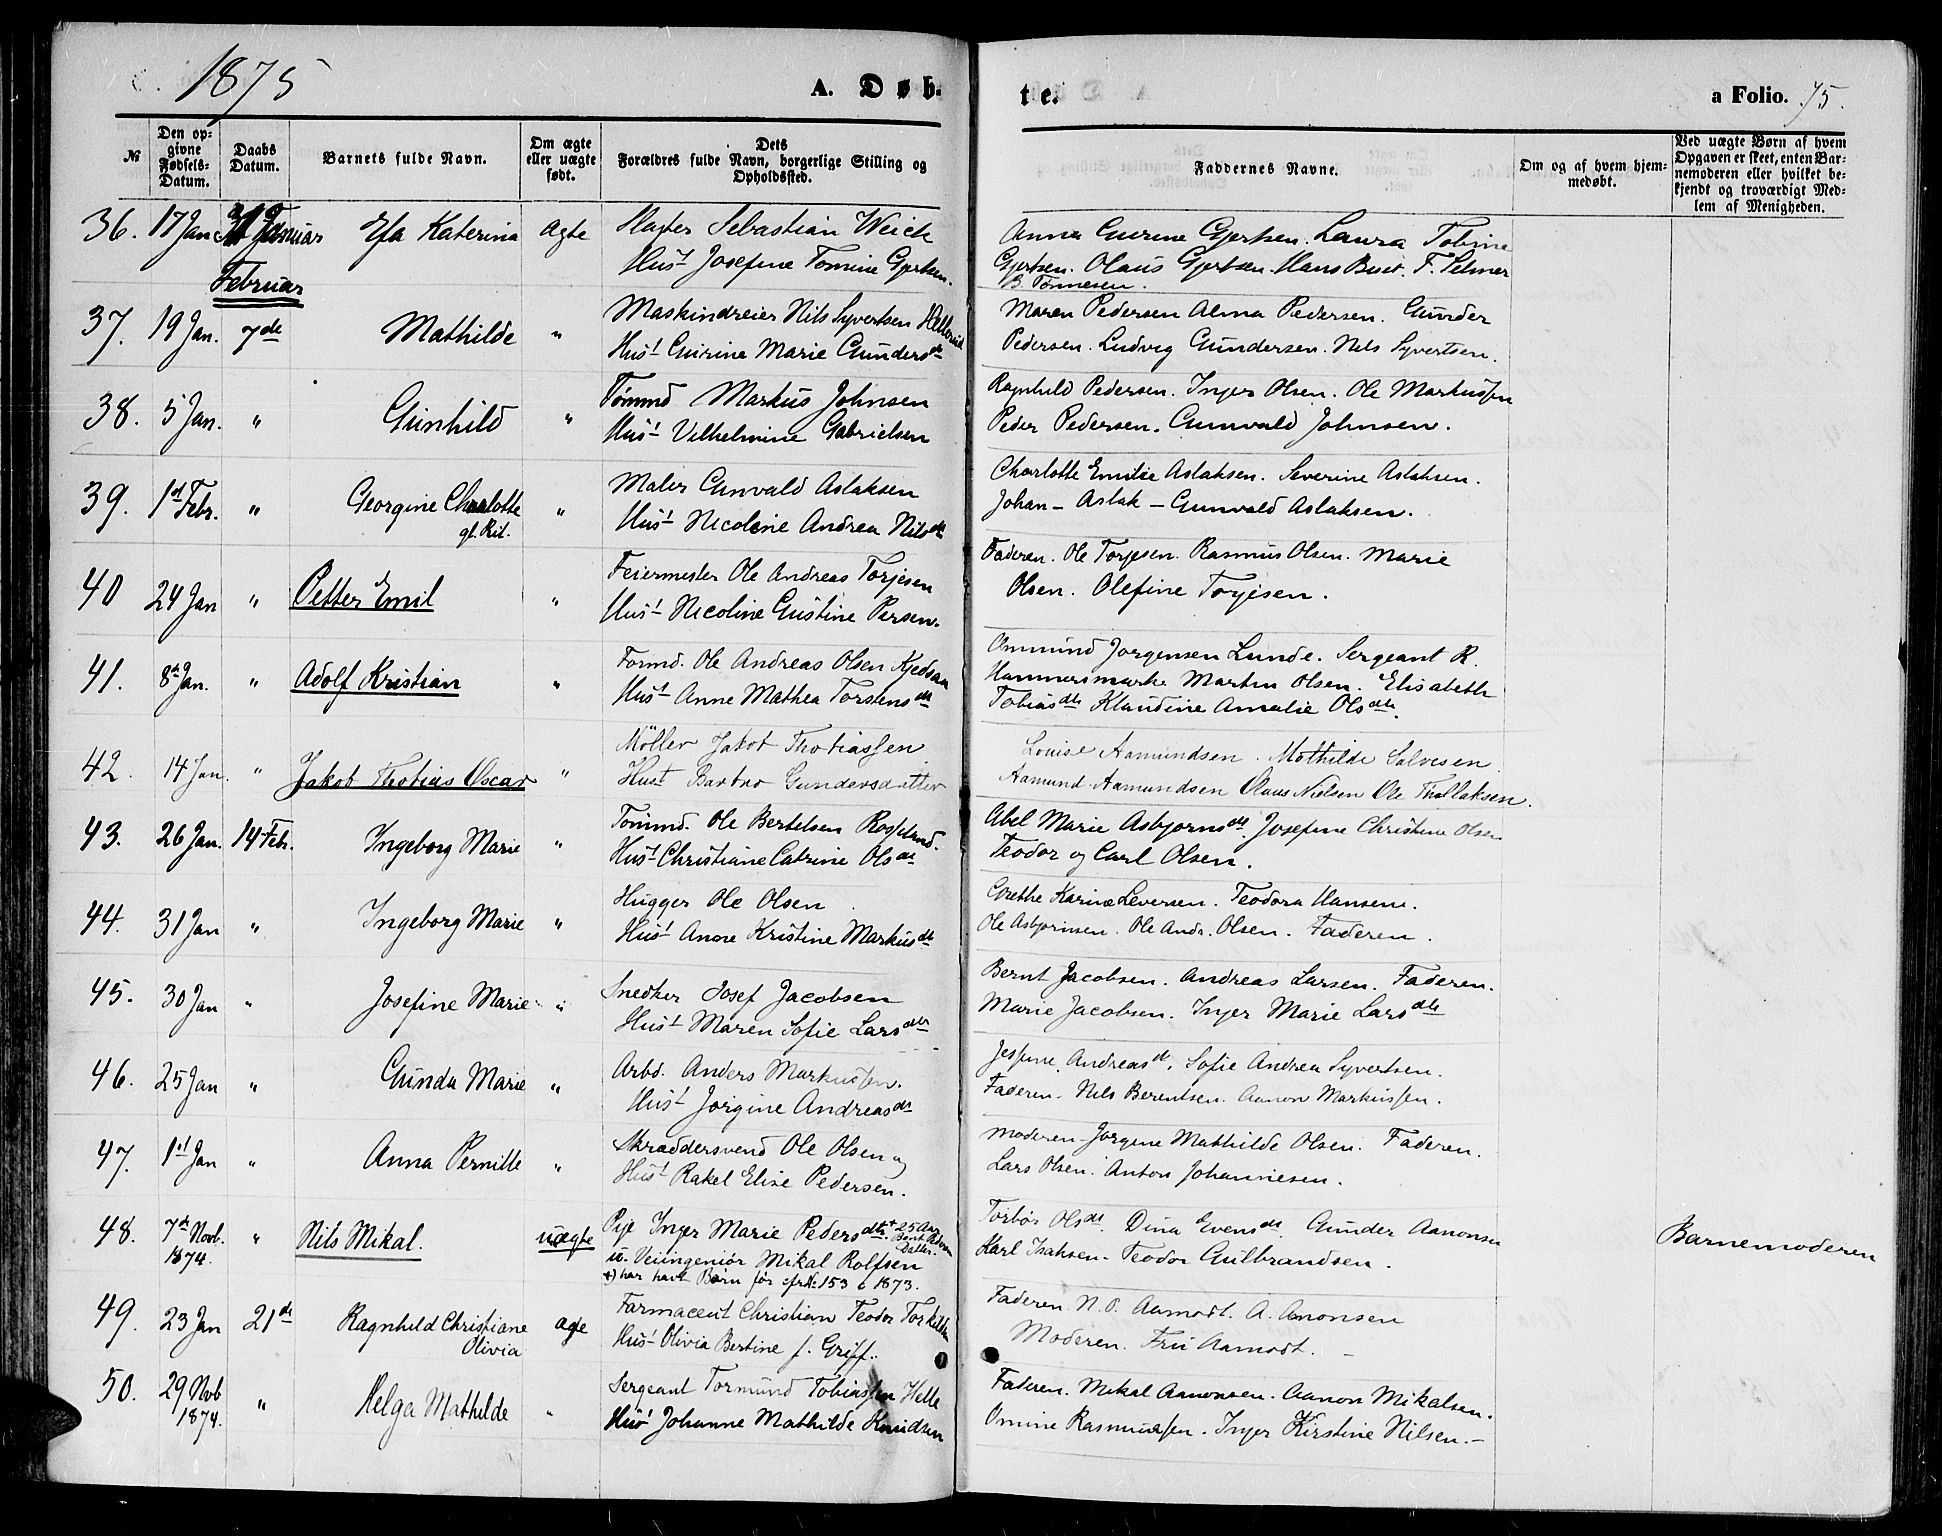 1875
A. Døb-
te.
a Folio. 75.
№
Den op-
givne
Fødsels-
Datum.
Daabs
Datum.
Barnets fulde Navn.
Om ægte
eller uægte
født.
Dets
Forældres fulde Navn, borgerlige Stilling og
Opholdssted.
Faddernes Navne.
Om og af hvem hjem-
medøbt.
Ved uægte Børn af hvem
Opgaven er skeet, enten Bar-
nemoderen eller hvilket be-
kjendt og troværdigt Med-
lem af Menigheden.
36. 17 Jan Januar Katerina ægte Sebastian Weick
Hust Josefine Tomine Gjertsen.
Anna Gurine Gjertsen. Laura Tobine
Gjertsen. Olaus Gjertsen. Hans F. Selmer
B. Tönnesen.
Februar
37. 19 Jan. 7de Mathilde " Maskindreier Nils Syvertsen
Hust Gurine Marie Gundersdt
Maren Pedersen Alma Pedersen. Gunder
Pedersen. Ludvig Gundersen. Nels Syvertsen.
38. 5 Jan. " Gunhild " Tömmd Markus Johnsen
Hust Vilhelmine Gabrielsen
Ragnhild Pedersen. Inger Olsen. Ole Markussen
Peder Pedersen. Gunvald Johnsen.
39. 1st Febr. " Georgine Charlotte "
gl. Rit.
Maler Gunvald Aslaksen
Hust Nicoline Andrea Nilsdt
Charlotte Emilie Aslaksen. Severine Aslaksen.
Johan - Aslak - Gunvald Aslaksen.
40 24 Jan " Petter Emil " Feiermester Ole Andreas Torjesen
Hust Nicoline Gustine Persen.
Faderen. Ole Torjesen. Rasmus Olsen. Marie
Olsen. Olefine Torjesen.
41. 8de Jan. " Adolf Kristian " Tömmd. Ole Andreas Olsen
Hust Anne Mathea Torstensdt
Ommund Jorgensen Lunde. Sergeant R.
Hammersmark Martin Olsen. Elisabeth
Tobiasdtr Klaudine Amalie Olsdtr.
42. 14 Jan. " Jakob Thobias Oscar " Möller Jakob Thobiassen
Hust Barbro Gundersdatter
Louise Aamundsen. Mathilde Salvesen
Aamund Aamundsen Olaus Nielsen Ole Thellaksen.
43. 26 Jan. 14 Feb. Ingeborg Marie " Tömmd. Ole Bertelsen Rosseland.
Hust Christiane Catrine Olsdt
Abel Marie Asbjornsdt. Josefine Christine Olsen
Teodor og Carl Olsen.
44. 31 Jan " Ingeborg Marie " Hugger Ole Olsen
Hust Anne Kristine Markusdt
Grethe Karine Leversen. Teodora Hansen.
Ole Asbjornsen. Ole Andr. Olsen. Faderen.
45. 30 Jan " Josefine Marie " Snedker Josef Jacobsen
Hust Maren Sofie Larsdtr
Bernt Jacobsen. Andreas Larsen. Faderen.
Marie Jacobsen. Inger Marie Larsdtr
46. 25 Jan " Gunda Marie " Arbd. Anders Markussen.
Hust Jörgine Andreasdt
Jessine Andreasdt. Sofie Andrea Syvertsen.
Faderen. Nils Berentsen. Aanon Markussen.
47. 1st Jan " Anna Pernille " Skræddersvend Ole Olsen og
Hust Rakel Elise Pedersen.
Moderen Jorgine Mathilde Olsen. Faderen.
Lars Olsen. Anton Johannesen.
48. 7de Novb. 1874. " Nils Mikal. uægte Pige Inger Marie Pedersdtr. + 25 Aar
u. Veiingeniör Mikal Rolfsen
+) har havt Börn för cfr No 153 i 1873.
Torbör Olsdt Dina Evensdt Gunder Aanonsen
Karl Isaksen. Teodor Gulbrandsen.
Barnemoderen
49. 23 Jan 21de Ragnhild Christiane Olivia ægte Farmaceut Christian Teodor Torkildsen
Hust Olivia Bertine f. Griff.
Faderen. N. P. Aamodt. A. Aanonsen
Moderen. Fru Aamodt. -
50. 29 Novb 1874. " Helga Mathilde " Sergeant Tormund Tobiassen Helle
Hust Johanne Mathilde Knudsen
Faderen. Mikal Aanonsen. Aanon Mikalsen.
Omine Rasmussen. Inger Kirstine Nilsen. -